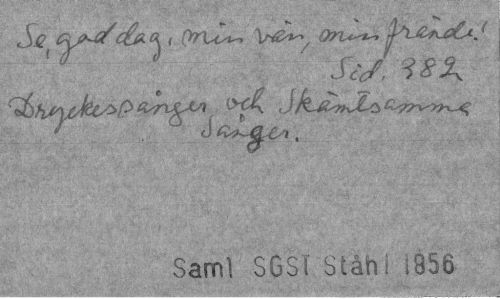 Se, god dag, min vän, min frände!
Sid. 382
Dryckessånger och Skämtsamma
Sånger.
Saml SGST Ståhl 1856